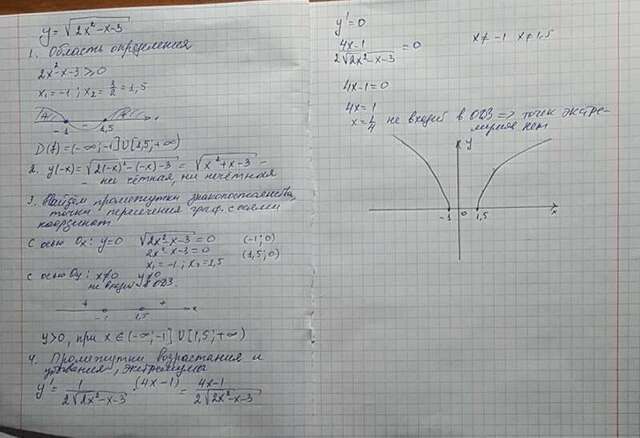 y=√(2x²-x-3)
1. Область определения
2x²-x-3≥0
x₁=-1; x₂=3/2=1,5
-1 1,5 x
D(f)=(-∞;-1]∪[1,5;+∞)
2. y(-x)=√(2(-x)²-(-x)-3)=√(x²+x-3) -
- ни чётная, ни нечётная
3. Найдем промежутки знакопостоянства,
точки пересечения граф. с осями
координат
С осью Ox: y=0 √(2x²-x-3)=0 (-1;0)
2x²-x-3=0 (1,5;0)
x₁=-1; x₂=1,5
С осью Oy: x≠0 y≠0
не входит в ОДЗ.
+ -1 1,5 + x
y>0, при x∈(-∞;-1]∪[1,5;+∞)
4. Промежутки возрастания и
убывания, экстремумы
y'=1/(2√(2x²-x-3)) (4x-1)=(4x-1)/(2√(2x²-x-3))
y'=0
(4x-1)/(2√(2x²-x-3))=0 x≠-1 x≠1,5
4x-1=0
4x=1
x=1/4 не входит в ОДЗ => точек экстре-
мумов нет
y
-1 0 1,5 x